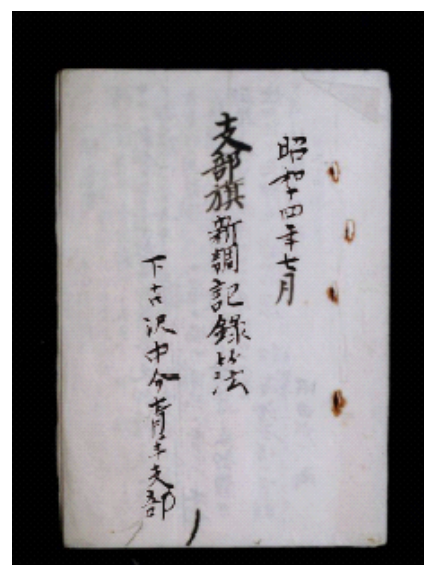 昭和十四年七月
支部旗新調記録
下古沢中分青年支部